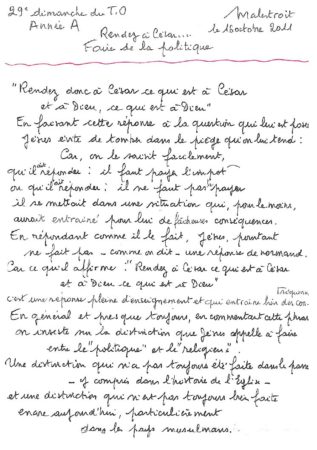 29e dimanche du T.O
Année A
Malestroit
le 16 octobre 2011
Rendez à César...
Faire de la politique
"Rendez donc à César ce qui est à César
et à Dieu, ce qui est à Dieu"
En faisant cette réponse à la question qui lui est posée
Jésus évite de tomber dans le piège qu'on lui tend :
Car, on le saisit facilement,
qu'il ait répondre : il faut payer l'impôt
ou qu'il ait répondre : il ne faut pas payer
il se mettait dans une situation qui, pour le moins,
aurait entraîné pour lui de fâcheuses conséquences.
En répondant comme il le fait, Jésus, pourtant
ne fait pas - comme on dit - une réponse de normand.
Car ce qu'il affirme : "Rendez à César ce qui est à César
et à Dieu ce qui est à Dieu"
c'est une réponse pleine d'enseignement et qui entraîne bien des con-
séquences
En général et presque toujours, en commentant cette phrase
on insiste sur la distinction que Jésus appelle à faire
entre le "politique" et le "religieux".
Une distinction qui n'a pas toujours été faite dans le passé
- y compris dans l'histoire de l'Eglise -
et une distinction qui n'est pas toujours bien faite
encore aujourd'hui, particulièrement
dans les pays musulmans.